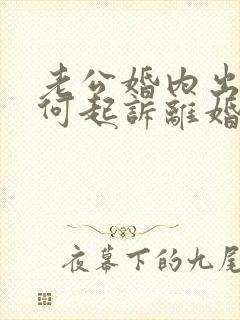 老公婚內出
何起訴離婚
夜幕下的九尾